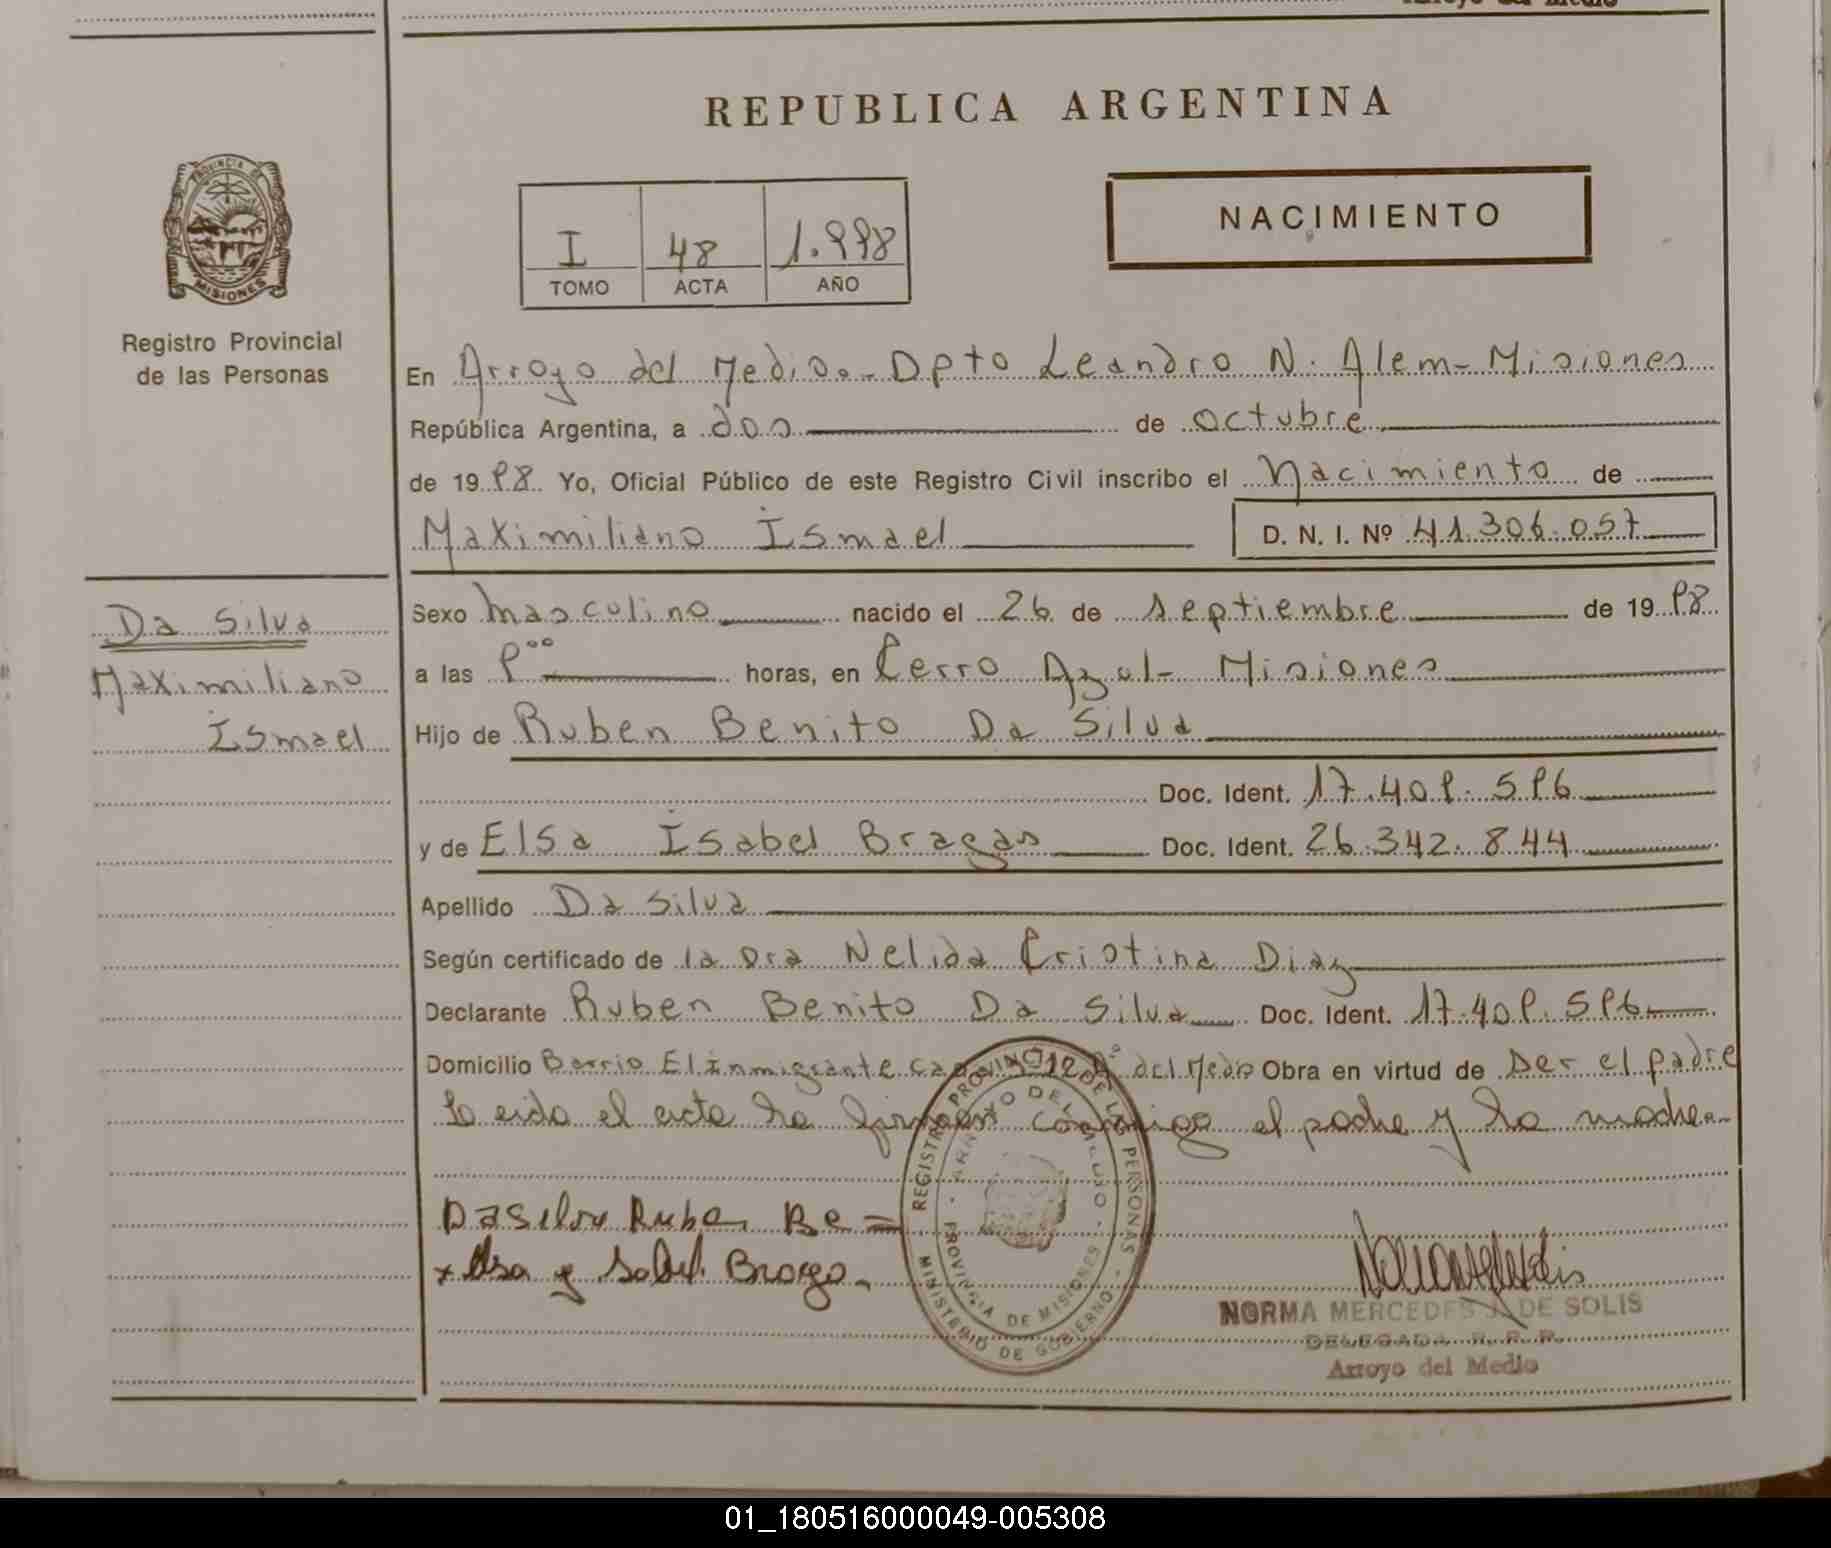 REPUBLICA ARGENTINA
PROVINCIA DE
MISIONES
Registro Provincial
de las Personas
I 48 1.998
TOMO ACTA AÑO
NACIMIENTO
En Arroyo del Medio.- Dpto Leandro N. Alem- Misiones
República Argentina, a dos de octubre
de 19 98 Yo, Oficial Público de este Registro Civil inscribo el Nacimiento de
Maximiliano Ismael D. N. I. Nº 41.306.057
Da Silva
Maximiliano
Ismael
Sexo Masculino nacido el 26 de septiembre de 19 98
a las 9°° horas, en Cerro Azul- Misiones
Hijo de Ruben Benito Da Silva
Doc. Ident. 17.409.596
y de Elsa Isabel Bragas Doc. Ident. 26.342.844
Apellido Da Silva
Según certificado de la Dra Nelida Cristina Diaz
Declarante Ruben Benito Da Silva Doc. Ident. 17.409.596
Domicilio Barrio El Inmigrante del Medio Obra en virtud de ser el padre
el acta el padre y la madre.-
Da Silva Ruben Be
Elsa y Sabel. Braga.
REGISTRO PROVINCIAL DE LAS PERSONAS
ARROYO DEL MEDIO
PROVINCIA DE MISIONES
MINISTERIO DE GOBIERNO
NORMA MERCEDES J. DE SOLIS
DELEGADA R. P. P.
Arroyo del Medio
01_180516000049-005308